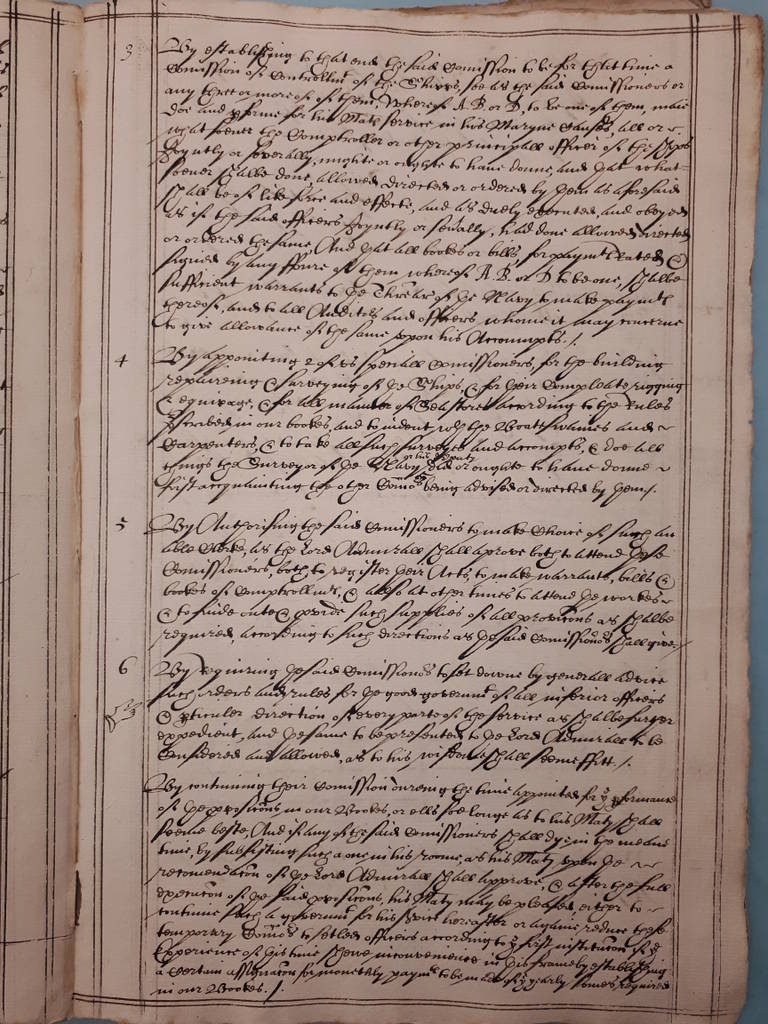 3 By establishing to that end the said Comission to be for that time a
Comission of Controllmt of the Shipps, soe as the said Comissioners or
any three or more of them, whereof A. B. or D, to be one of them, maie
doe and pforme for his Mats service in his Maryne Causes, all or
what soever the Comptroller or other principall officer of the Shipps
Joyntly or severally, might or ought to have donne, and yt what
soever shalbe done, allowed, directed or ordered by them as aforesaid
shall be of like force and effecte, and as duely executed, and obeyed
as if the said officers Joyntly or sevally, had done allowed directed
or ordered the same, And yt all bookes or bills, for paymt rated &
signed by any ffoure of them whereof A. B. or D to be one, shalbe
sufficient warrants to ye Threār of ye Navy to make paymt
thereof, and to all Auditors and officers whome it may concerne
to give allowance of the same upon his Accompts. /.
4 By appointing 2 of us speciall Comissioners, for the building
repairing & surveying of ye Ships, & for their compleate rigging
& equipage, & for all manner of Sea stores according to the Rules
in our bookes, and to indent wth the Boatswaines and
Carpenters, & to take all such surveyes and accompts, & doe all
things the Surveyor of ye Navy or his deputy did or ought to have donne
first acquainting the other Comrs & being advised or directed by them /.
5 By Authorising the said Comissioners to make choice of such an
able Clerke, as the Lord Admirall shall aprove both to attend these
Comissioners, both to register their Acts, to make warrants, bills &
bookes of Comptrollmt, & alsoe at other times to attend ye workes
& to finde oute & pvide such supplies of all provicons as shalbe
required, according to such directions as ye said Comissioners shall give /
6 By requiring ye said Comissioners to set downe by generall advice
such orders and rules for ye good governmt of all inferior officers
& pticuler direction of every parte of the service as shalbe
expedient, and ye same to be presented to ye Lord Admirall to be
Considered and allowed, as to his wisdom shall seeme fitt. /.
By continuing their Comission during the time appointed for ye pformance
of ye propositions in our Bookes, or ells soe longe as to his Maty shall
seeme beste, And if any of the said Comissioners shall dye in the meane
time, by substituting such a one in his roome, as his Maty upon ye
recomendation of ye Lord Admirall shall approve, & after the full
execution of ye said propositions, his Maty may be pleased, either to
continue such a governmt for his service hereafter or againe reduce these
temporary Comrs to setled officers according to ye first institution if ye
Experience of this time shewe inconvenience in this frame by establishing
a certain assignation for monthly paymt to be made of ye yearly somes required
in our Bookes. /.